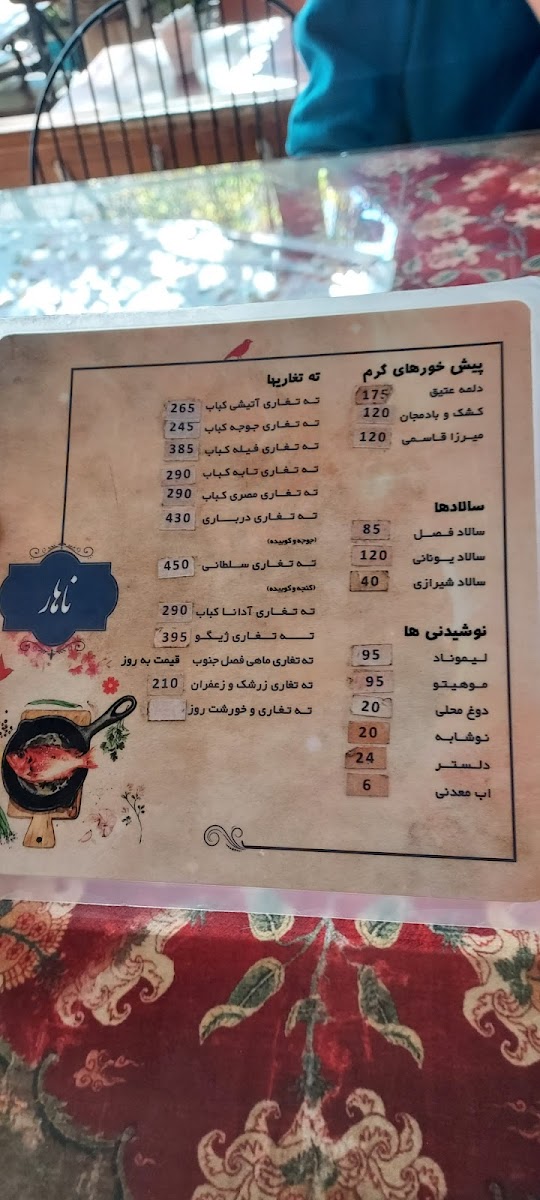 پیش خورهای گرم
دلمه عتیق 175
کشک و بادمجان 120
میرزا قاسمی 120
سالادها
سالاد فصل 85
سالاد یونانی 120
سالاد شیرازی 40
نوشیدنی ها
لیموناد 95
موهیتو 95
دوغ محلی 20
نوشابه 20
دلستر 24
اب معدنی 6
ته تغاریها
ته تغاری آتیشی کباب 265
ته تغاری جوجه کباب 245
ته تغاری فیله کباب 385
ته تغاری تابه کباب 290
ته تغاری مصری کباب 290
ته تغاری درباری 430
(جوجه و کوبیده)
ته تغاری سلطانی 450
(کنجه و کوبیده)
ته تغاری آدانا کباب 290
ته تغاری ژیگو 395
ته تغاری ماهی فصل جنوب قیمت به روز
ته تغاری زرشک و زعفران 210
ته تغاری و خورشت روز
ناهار